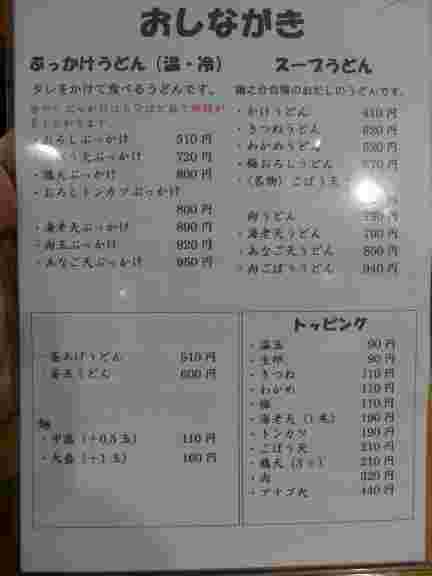 おしながき
ぶっかけうどん(温・冷)
タレをかけて食べるうどんです。
・おろしぶっかけ 510円
天ぶっかけ 720円
・鶏天ぶっかけ 800円
・おろしトンカツぶっかけ
800円
・海老天ぶっかけ 890円
・肉玉ぶっかけ 920円
・あなご天ぶっかけ 950円
スープうどん
自慢のおだしのうどんです。
・かけうどん 410円
・きつねうどん 520円
・わかめうどん 520円
・梅おろしうどん 570円
・(名物)ごぼう天
肉うどん
・海老天うどん 790円
・あなご天うどん 850円
・肉ごぼううどん 940円
釜あげうどん 510円
・釜玉うどん 600円
麺
・中盛(+0.5玉) 110円
・大盛(+1玉) 160円
トッピング
・温玉 90円
・生卵 90円
・きつね 110円
・わかめ 110円
・梅 110円
・海老天(1本) 190円
・トンカツ 190円
・ごぼう天 210円
・鶏天(3ヶ) 210円
・肉 320円
・アナゴ天 440円